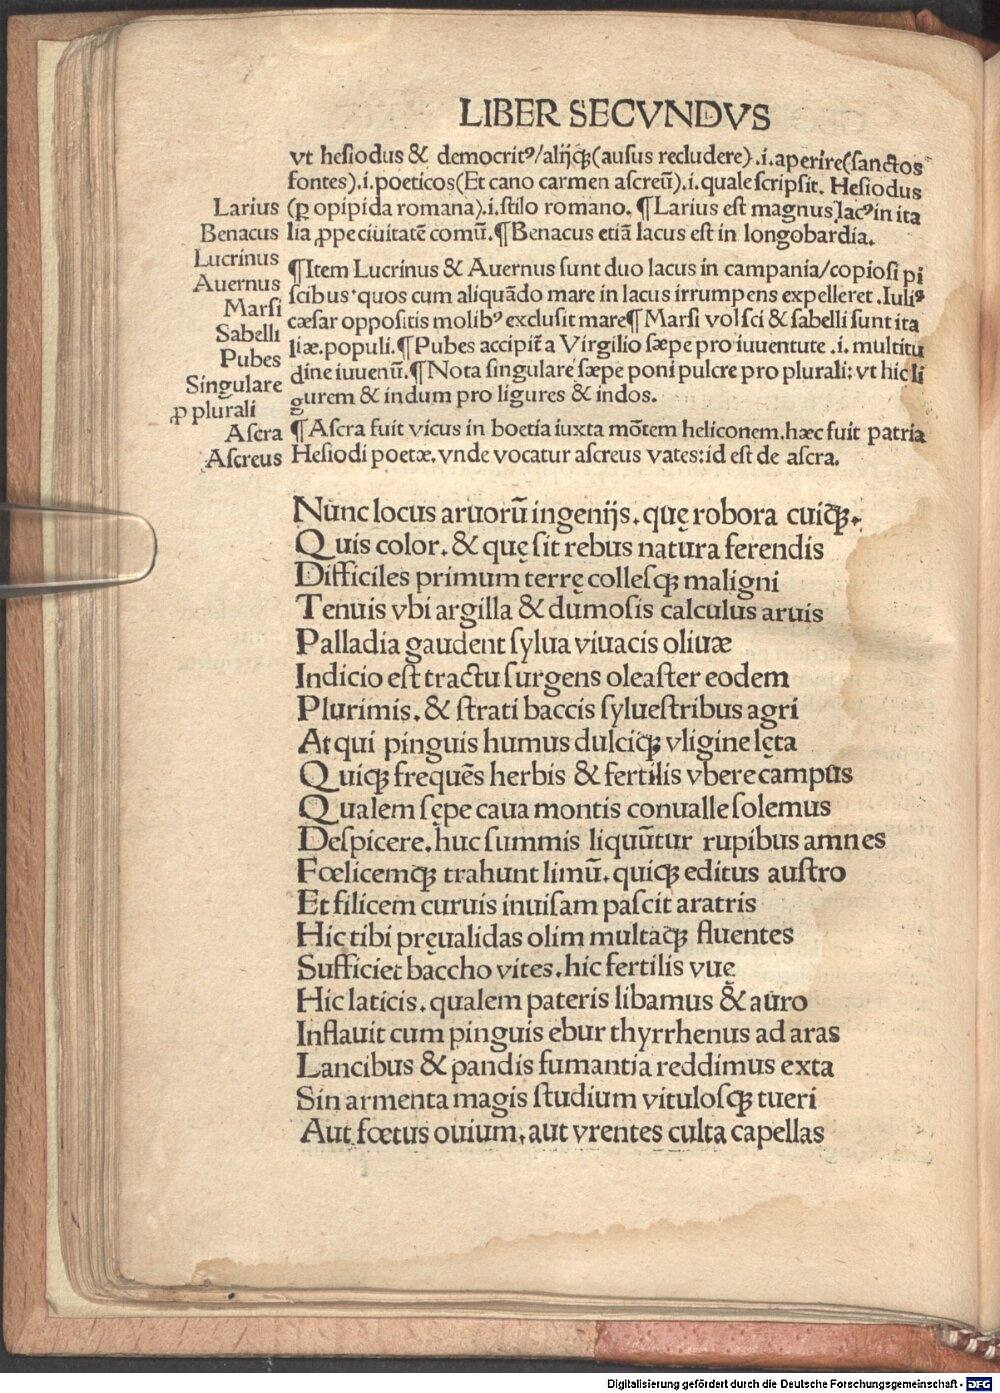 LIBER SECVNDVS
vt hesiodus & democritꝰ/alijqꝫ(ausus recludere).i.aperire(sanctos
fontes).i.poeticos(Et cano carmen ascreū).i.quale scripsit. Hesiodus
Larius (ꝑ opipida romana).i.stilo romano. ¶Larius est magnus lacꝰ in ita
Benacus lia ꝓpe ciuitatē comū.¶Benacus etiā lacus est in longobardia.
Lucrinus
Auernus ¶Item Lucrinus & Auernus sunt duo lacus in campania/copiosi pi
Marsi scibus·quos cum aliquādo mare in lacus irrumpens expelleret.Iuliꝰ
Sabelli cæsar oppositis molibꝰ exclusit mare¶Marsi volsci & sabelli sunt ita
Pubes liæ.populi.¶Pubes accipit̃ a Virgilio sæpe pro iuuentute.i.multitu
Singulare dine iuuenū.¶Nota singulare sæpe poni pulcre pro plurali: vt hic li
ꝓ plurali gurem & indum pro ligures & indos.
Ascra ¶Ascra fuit vicus in boetia iuxta mōtem heliconem.hæc fuit patria
Ascreus Hesiodi poetæ.vnde vocatur ascreus vates:id est de ascra.
Nunc locus aruorū ingenijs.quę robora cuiqꝫ.
Quis color.& quę sit rebus natura ferendis
Difficiles primum terrę collesqꝫ maligni
Tenuis vbi argilla & dumosis calculus aruis
Palladia gaudent sylua viuacis oliuæ
Indicio est tractu surgens oleaster eodem
Plurimis.& strati baccis syluestribus agri
At qui pinguis humus dulciqꝫ vligine lęta
Quiqꝫ frequēs herbis & fertilis vbere campus
Qualem sępe caua montis conualle solemus
Despicere.huc summis liquūtur rupibus amnes
Fœlicemqꝫ trahunt limū.quiqꝫ editus austro
Et filicem curuis inuisam pascit aratris
Hic tibi pręualidas olim multaqꝫ fluentes
Sufficiet baccho vites.hic fertilis vuę
Hic laticis.qualem pateris libamus & auro
Inflauit cum pinguis ebur thyrrhenus ad aras
Lancibus & pandis fumantia reddimus exta
Sin armenta magis studium vitulosqꝫ tueri
Aut fœtus ouium.aut vrentes culta capellas
Digitalisierung gefördert durch die Deutsche Forschungsgemeinschaft - DFG